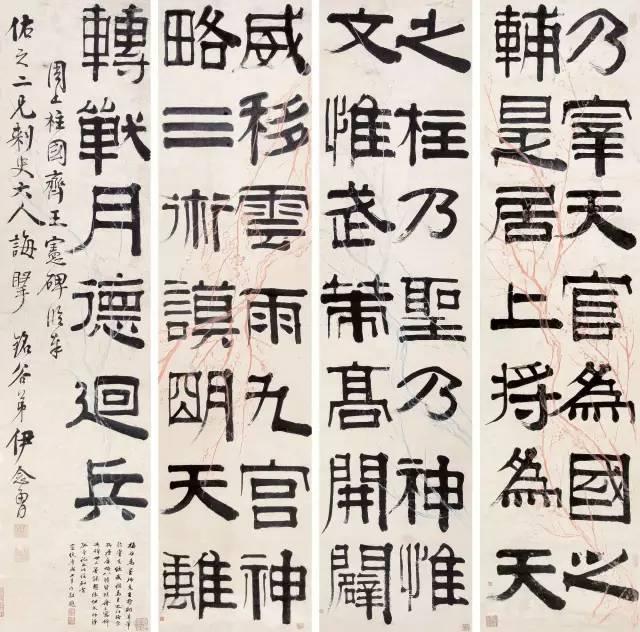 乃宰天官為國之
輔是居上將為天
之柱乃聖乃神惟
文惟武業高開闢
威移雲雨九宮神
略三術謨明天離
轉戰月德迴兵
周上柱國齊王憲碑臨奉
佑之二兄刺史大人誨 弟伊念曾